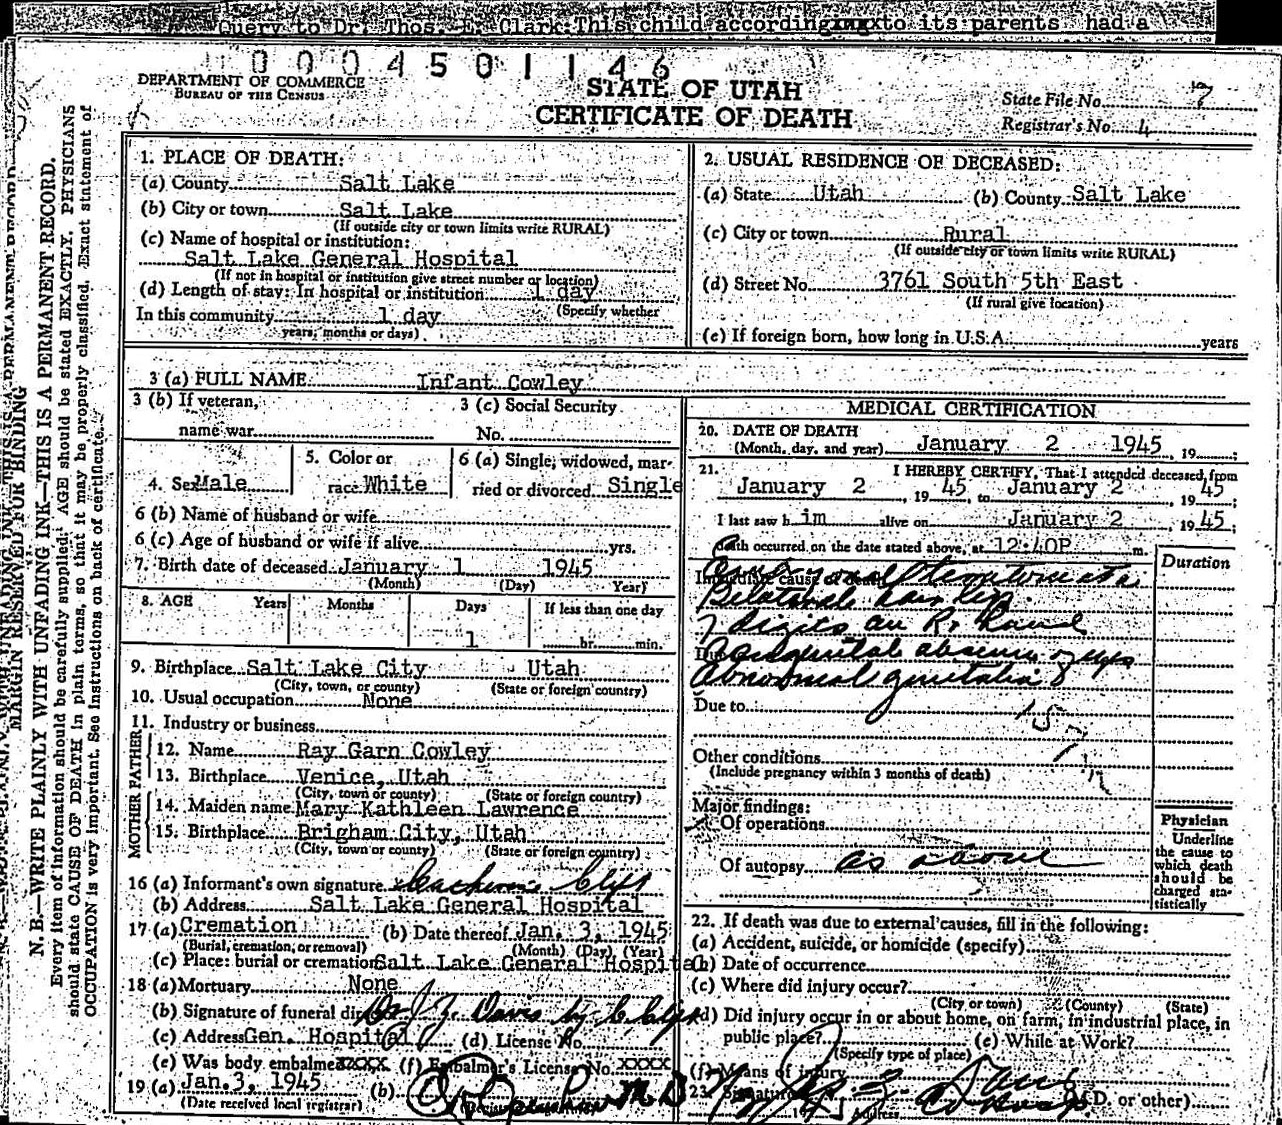 Query to Dr. Thos. E. Clark: This child according to its parents had a
0004501146
DEPARTMENT OF COMMERCE
BUREAU OF THE CENSUS
STATE OF UTAH
CERTIFICATE OF DEATH
State File No. 7
Registrar's No. 4
MARGIN RESERVED FOR BINDING
N. B.—WRITE PLAINLY WITH UNFADING INK—THIS IS A PERMANENT RECORD.
Every item of information should be carefully supplied. AGE should be stated EXACTLY. PHYSICIANS
should state CAUSE OF DEATH in plain terms, so that it may be properly classified. Exact statement of
OCCUPATION is very important. See instructions on back of certificate.
1. PLACE OF DEATH:
(a) County Salt Lake
(b) City or town Salt Lake
(If outside city or town limits write RURAL)
(c) Name of hospital or institution:
Salt Lake General Hospital
(If not in hospital or institution give street number or location)
(d) Length of stay: In hospital or institution 1 day
(Specify whether
In this community 1 day
years, months or days)
2. USUAL RESIDENCE OF DECEASED:
(a) State Utah (b) County Salt Lake
(c) City or town Rural
(If outside city or town limits write RURAL)
(d) Street No. 3761 South 5th East
(If rural give location)
(e) If foreign born, how long in U.S.A. years
3 (a) FULL NAME Infant Cowley
3 (b) If veteran,
name war
3 (c) Social Security
No.
4. Sex Male
5. Color or
race White
6 (a) Single, widowed, mar-
ried or divorced Single
6 (b) Name of husband or wife
6 (c) Age of husband or wife if alive yrs.
7. Birth date of deceased January 1 1945
(Month) (Day) Year)
8. AGE Years Months Days If less than one day
1 hr. min.
9. Birthplace Salt Lake City Utah
(City, town, or county) (State or foreign country)
10. Usual occupation None
11. Industry or business
FATHER
12. Name Ray Garn Cowley
13. Birthplace Venice, Utah
(City, town or county) (State or foreign country)
MOTHER
14. Maiden name Mary Kathleen Lawrence
15. Birthplace Brigham City, Utah
(City, town or county) (State or foreign country)
16 (a) Informant's own signature
(b) Address Salt Lake General Hospital
17 (a) Cremation (b) Date thereof Jan. 3, 1945
(Burial, cremation, or removal) (Month) (Day) (Year)
(c) Place: burial or cremation Salt Lake General Hospital
18 (a) Mortuary None
(b) Signature of funeral dir Davis by C. Clift
(c) Address Gen. Hospital (d) License No.
(e) Was body embalmed xxxx (f) Embalmer's License No. xxxx
19 (a) Jan. 3, 1945 (b) M D
(Date received local registrar)
MEDICAL CERTIFICATION
20. DATE OF DEATH
(Month, day, and year) January 2 1945, 19
21. I HEREBY CERTIFY, That I attended deceased from
January 2, 1945, to January 2, 1945
I last saw him alive on January 2, 1945;
Death occurred on the date stated above, at 12:40P m.
Duration
Immediate cause of death
Bilateral hair lip
7 digits on R. Hand
Congenital absence of eyes
Abnormal genitalia
Due to
157
Other conditions
(Include pregnancy within 3 months of death)
Major findings:
Of operations
Of autopsy as above
Physician
Underline
the cause to
which death
should be
charged sta-
tistically
22. If death was due to external causes, fill in the following:
(a) Accident, suicide, or homicide (specify)
(b) Date of occurrence
(c) Where did injury occur?
(City or town) (County) (State)
(d) Did injury occur in or about home, on farm, in industrial place, in
public place? (e) While at Work?
(Specify type of place)
(f) Means of injury
23. Signature (M.D. or other)
Address